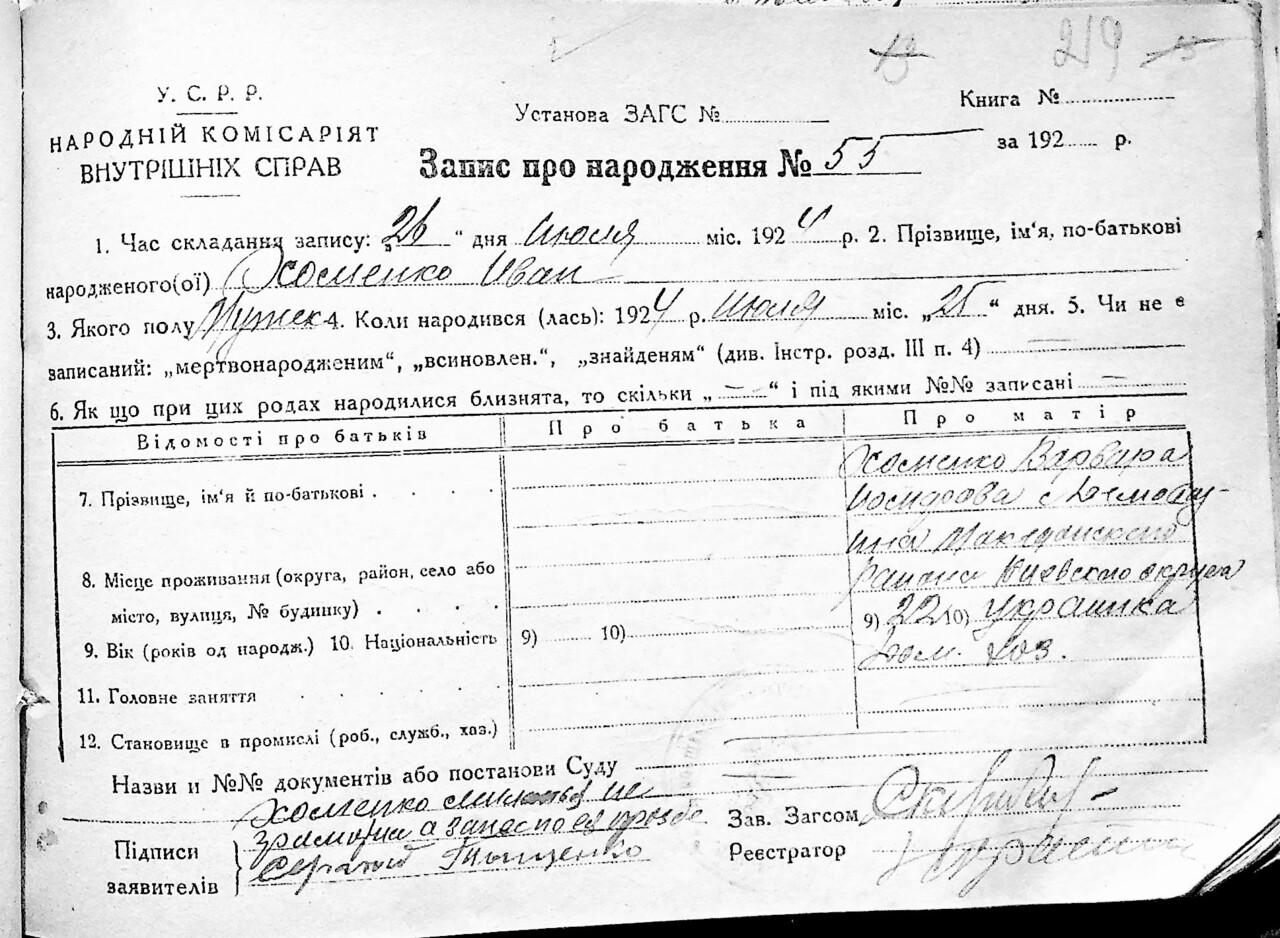 219
У. С. Р. Р.
НАРОДНІЙ КОМІСАРІЯТ
ВНУТРІШНІХ СПРАВ
Установа ЗАГС №
Книга №
за 192 р.
Запис про народження № 55
1. Час складання запису: „26 “ дня Июля міс. 1924 р. 2. Прізвище, ім'я, по-батькові
народженого(ої) Хоменко Иван
3. Якого полу Мужск 4. Коли народився (лась): 1924 р. Июля міс. „25 “ дня. 5. Чи не є
записаний: „мертвонародженим“, „всиновлен.“, „знайденям“ (див. Інстр. розд. III п. 4)
6. Як що при цих родах народилися близнята, то скільки „ “ і під якими №№ записані
Відомості про батьків Про батька Про матір
7. Прізвище, ім'я й по-батькові Хоменко Варвара
8. Місце проживання (округа, район, село або
місто, вулиця, № будинку)
района Киевского округа
9. Вік (років од народж.) 10. Національність 9) 10) 9) 22 10) Украинка
11. Головне заняття Дом. хоз.
12. Становище в промислі (роб., служб., хаз.)
Назви и №№ документів або постанови Суду
Підписи
заявителів
Хоменко не
грамотна а за нее по ея прозбе
Тыщенко
Зав. Загсом
Реєстратор